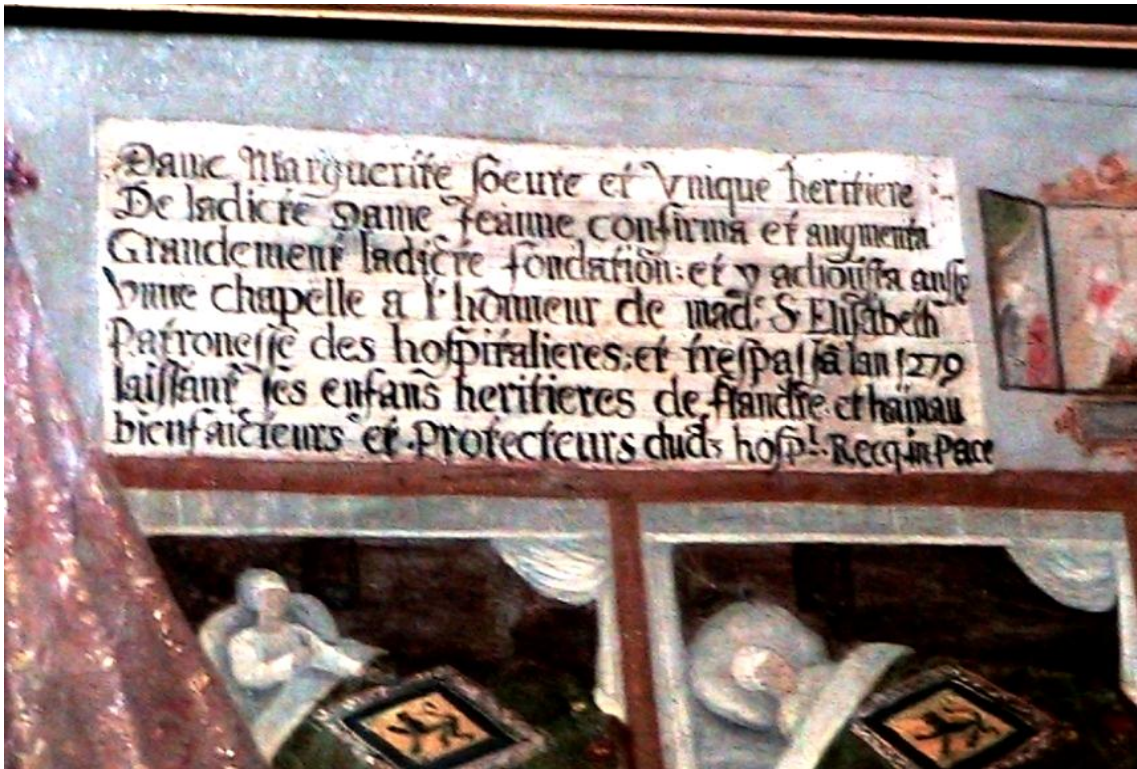 Dame Marguerite soeure et Vnique heritiere
De ladicte Dame Jeanne confirma et augmenta
Grandement ladicte fondation: et y adiousta ausse
Vnne chapelle a l'honneur de mad.e S Elisabeth
Patronesse des hospitalieres: et trespassa lan 1279
laissant ses enfans heritieres de flandre. et hainau
bienfaicteurs et Protecteurs dud. hosp.l. Recq. in Pace